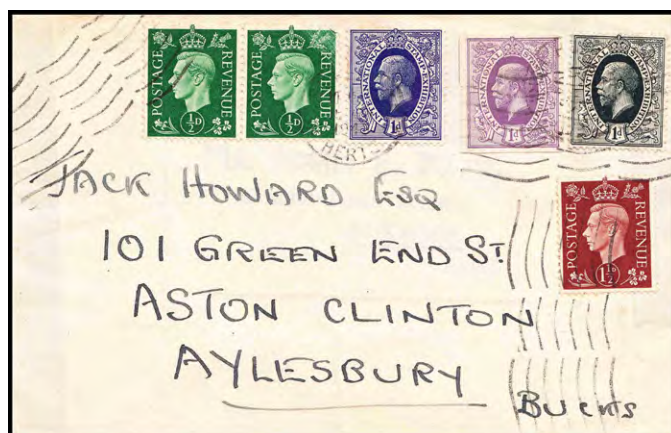 POSTAGE REVENUE ½D
POSTAGE REVENUE ½D
INTERNATIONAL STAMP EXHIBITION 1d
INTERNATIONAL STAMP EXHIBITION 1d
INTERNATIONAL STAMP EXHIBITION 1d
HERTS
JACK HOWARD ESQ
POSTAGE REVENUE 1½D
101 GREEN END ST.
ASTON CLINTON
AYLESBURY
BUCKS